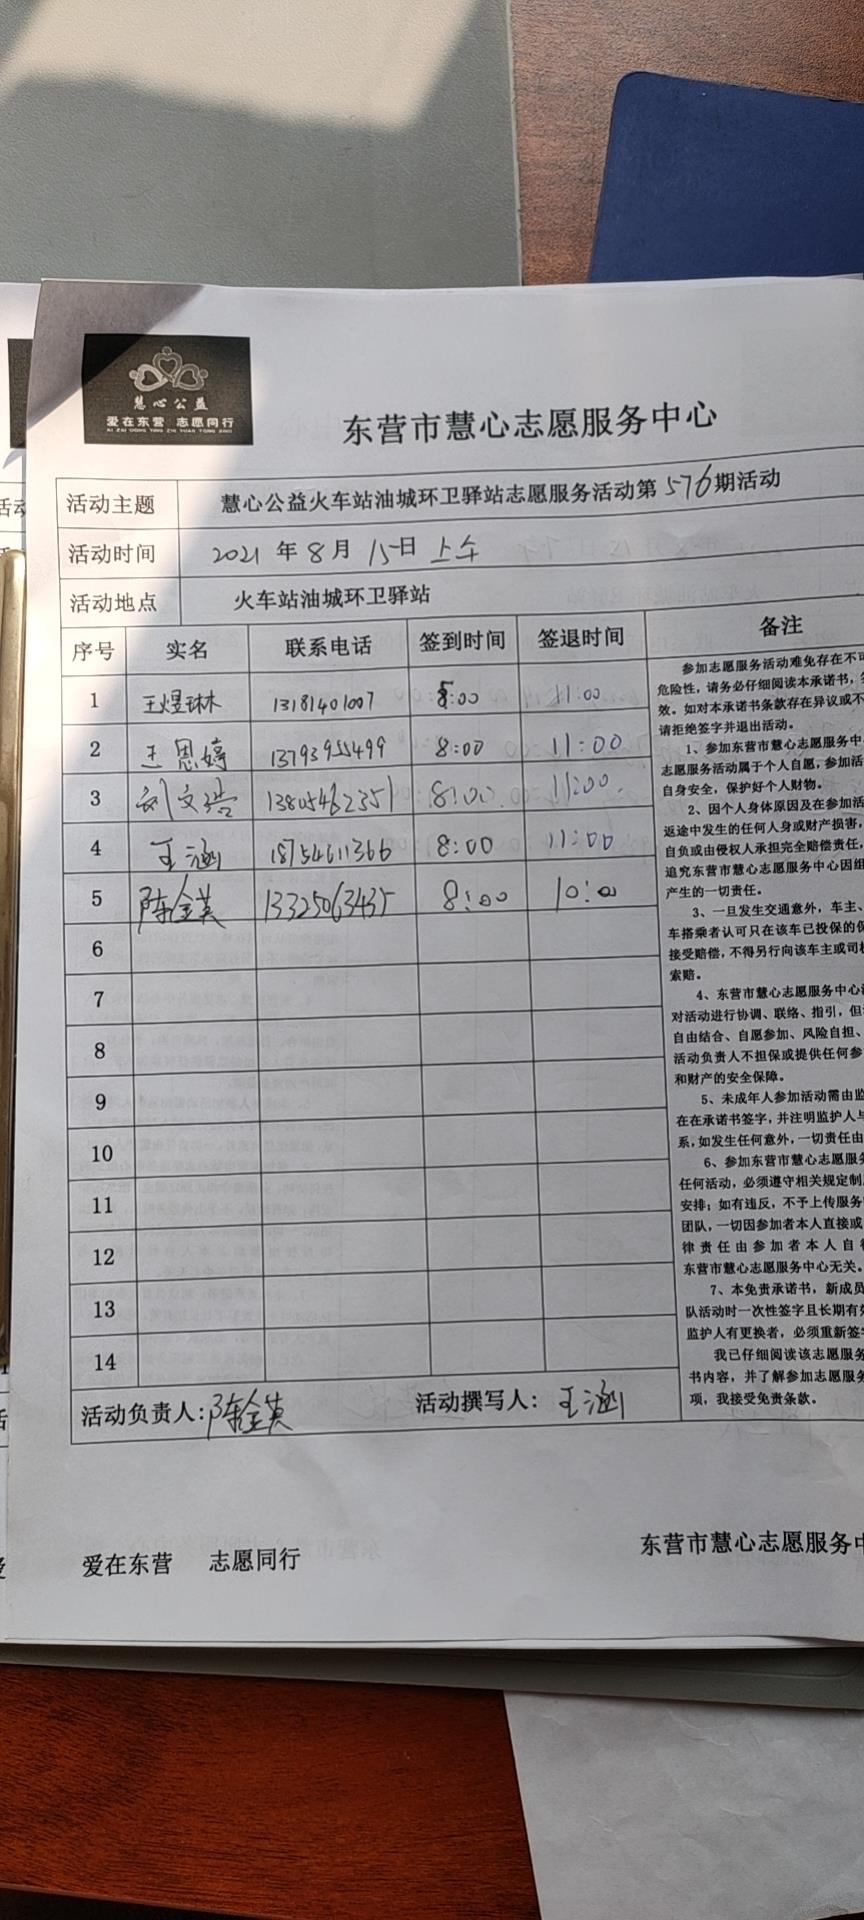 慧心公益
爱在东营 志愿同行
AI ZAI DONG YING ZHI YUAN TONG XING
东营市慧心志愿服务中心
活动主题 慧心公益火车站油城环卫驿站志愿服务活动第576期活动
活动时间 2021年8月15日上午
活动地点 火车站油城环卫驿站
序号 实名 联系电话 签到时间 签退时间 备注
1 王煜琳 13181401007 8:00 11:00
2 王恩婷 13793955499 8:00 11:00
3 刘文浩 13805462351 8:00 11:00
4 王涵 18754611366 8:00 11:00
5 陈金英 13325063435 8:00 10:00
6
7
8
9
10
11
12
13
14
参加志愿服务活动难免存在不可
危险性，请务必仔细阅读本承诺书，
效。如对本承诺书条款存在异议或不
请拒绝签字并退出活动。
1、参加东营市慧心志愿服务中
志愿服务活动属于个人自愿，参加活
自身安全，保护好个人财物。
2、因个人身体原因及在参加活
返途中发生的任何人身或财产损害，
自负或由侵权人承担完全赔偿责任，
追究东营市慧心志愿服务中心因组
产生的一切责任。
3、一旦发生交通意外，车主、
车搭乘者认可只在该车已投保的保
接受赔偿，不得另行向该车主或司机
索赔。
4、东营市慧心志愿服务中心
对活动进行协调、联络、指引，但
自由结合、自愿参加、风险自担、
活动负责人不担保或提供任何参
和财产的安全保障。
5、未成年人参加活动需由监
在在承诺书签字，并注明监护人与
系，如发生任何意外，一切责任由
6、参加东营市慧心志愿服务
任何活动，必须遵守相关规定制
安排；如有违反，不予上传服务
团队，一切因参加者本人直接或
律责任由参加者本人自行
东营市慧心志愿服务中心无关。
7、本免责承诺书，新成员
队活动时一次性签字且长期有效
监护人有更换者，必须重新签字
我已仔细阅读该志愿服务
书内容，并了解参加志愿服务
项，我接受免责条款。
活动负责人：陈金英 活动撰写人：王涵
爱在东营 志愿同行 东营市慧心志愿服务中